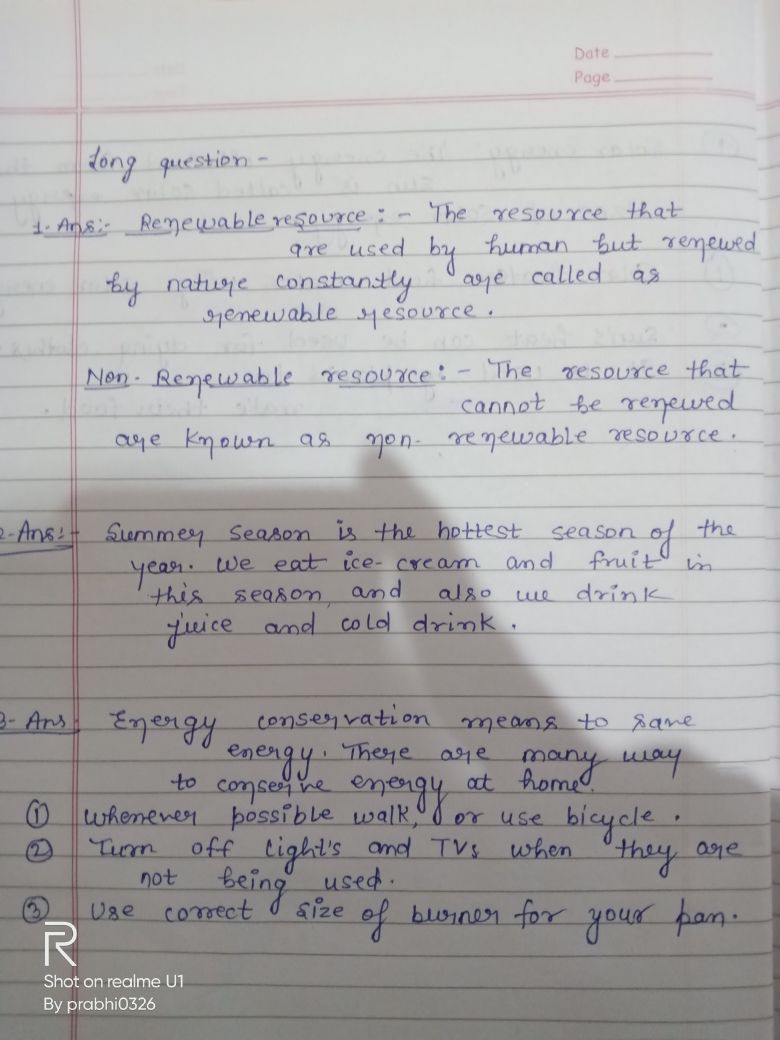 Date
Page
Long question -
1- Ans:- Renewable resource : - The resource that
are used by human but renewed
by nature constantly are called as
renewable resource .
Non - Renewable resource : - The resource that
cannot be renewed
are known as non - renewable resource .
2- Ans:- Summer season is the hottest season of the
year. We eat ice- cream and fruit in
this season, and also we drink
juice and cold drink .
3- Ans Energy conservation means to save
energy. There are many way
to conserve energy at home.
① Whenever possible walk, or use bicycle .
② Turn off light's and TVs when they are
not being used.
③ Use correct size of burner for your pan.
R
Shot on realme U1
By prabhi0326